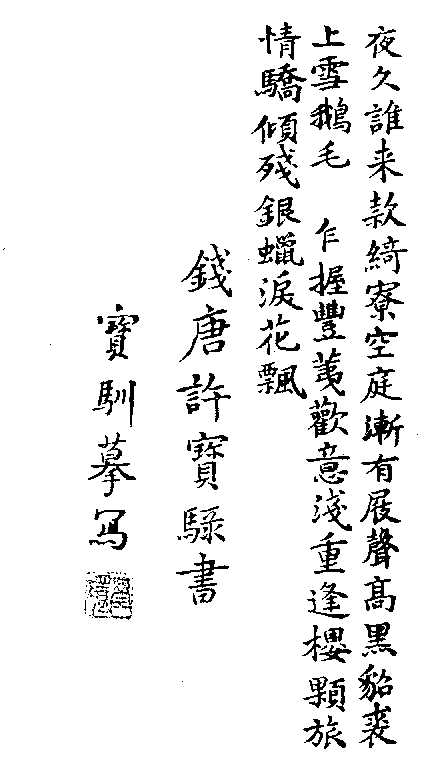 夜久誰来款綺寮空庭漸有屐聲髙黑貂裘
上雪鵝毛 乍握豐荑歡意淺重逢櫻顆旅
情驕傾殘銀蠟淚花飄
錢唐許寶騄書
寶馴摹寫